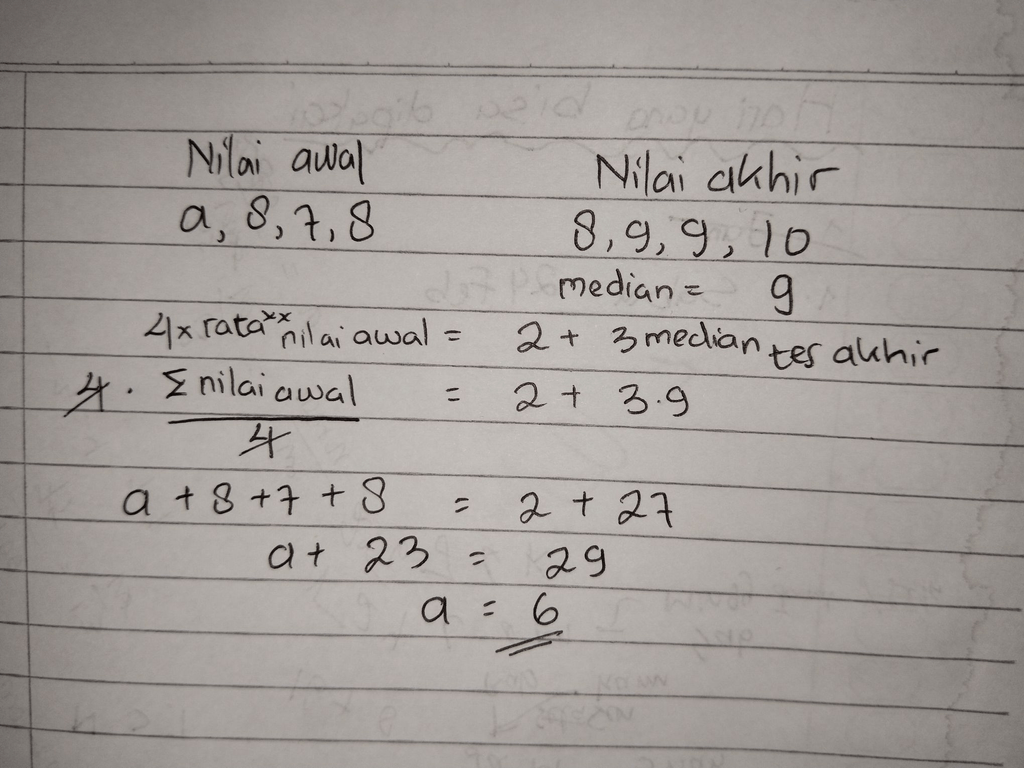 Nilai awal Nilai akhir
a, 8, 7, 8 8, 9, 9, 10
median = 9
4 x rata xx nilai awal = 2 + 3 median tes akhir
4 . Σ nilai awal = 2 + 3.9
4
a + 8 + 7 + 8 = 2 + 27
a + 23 = 29
a = 6